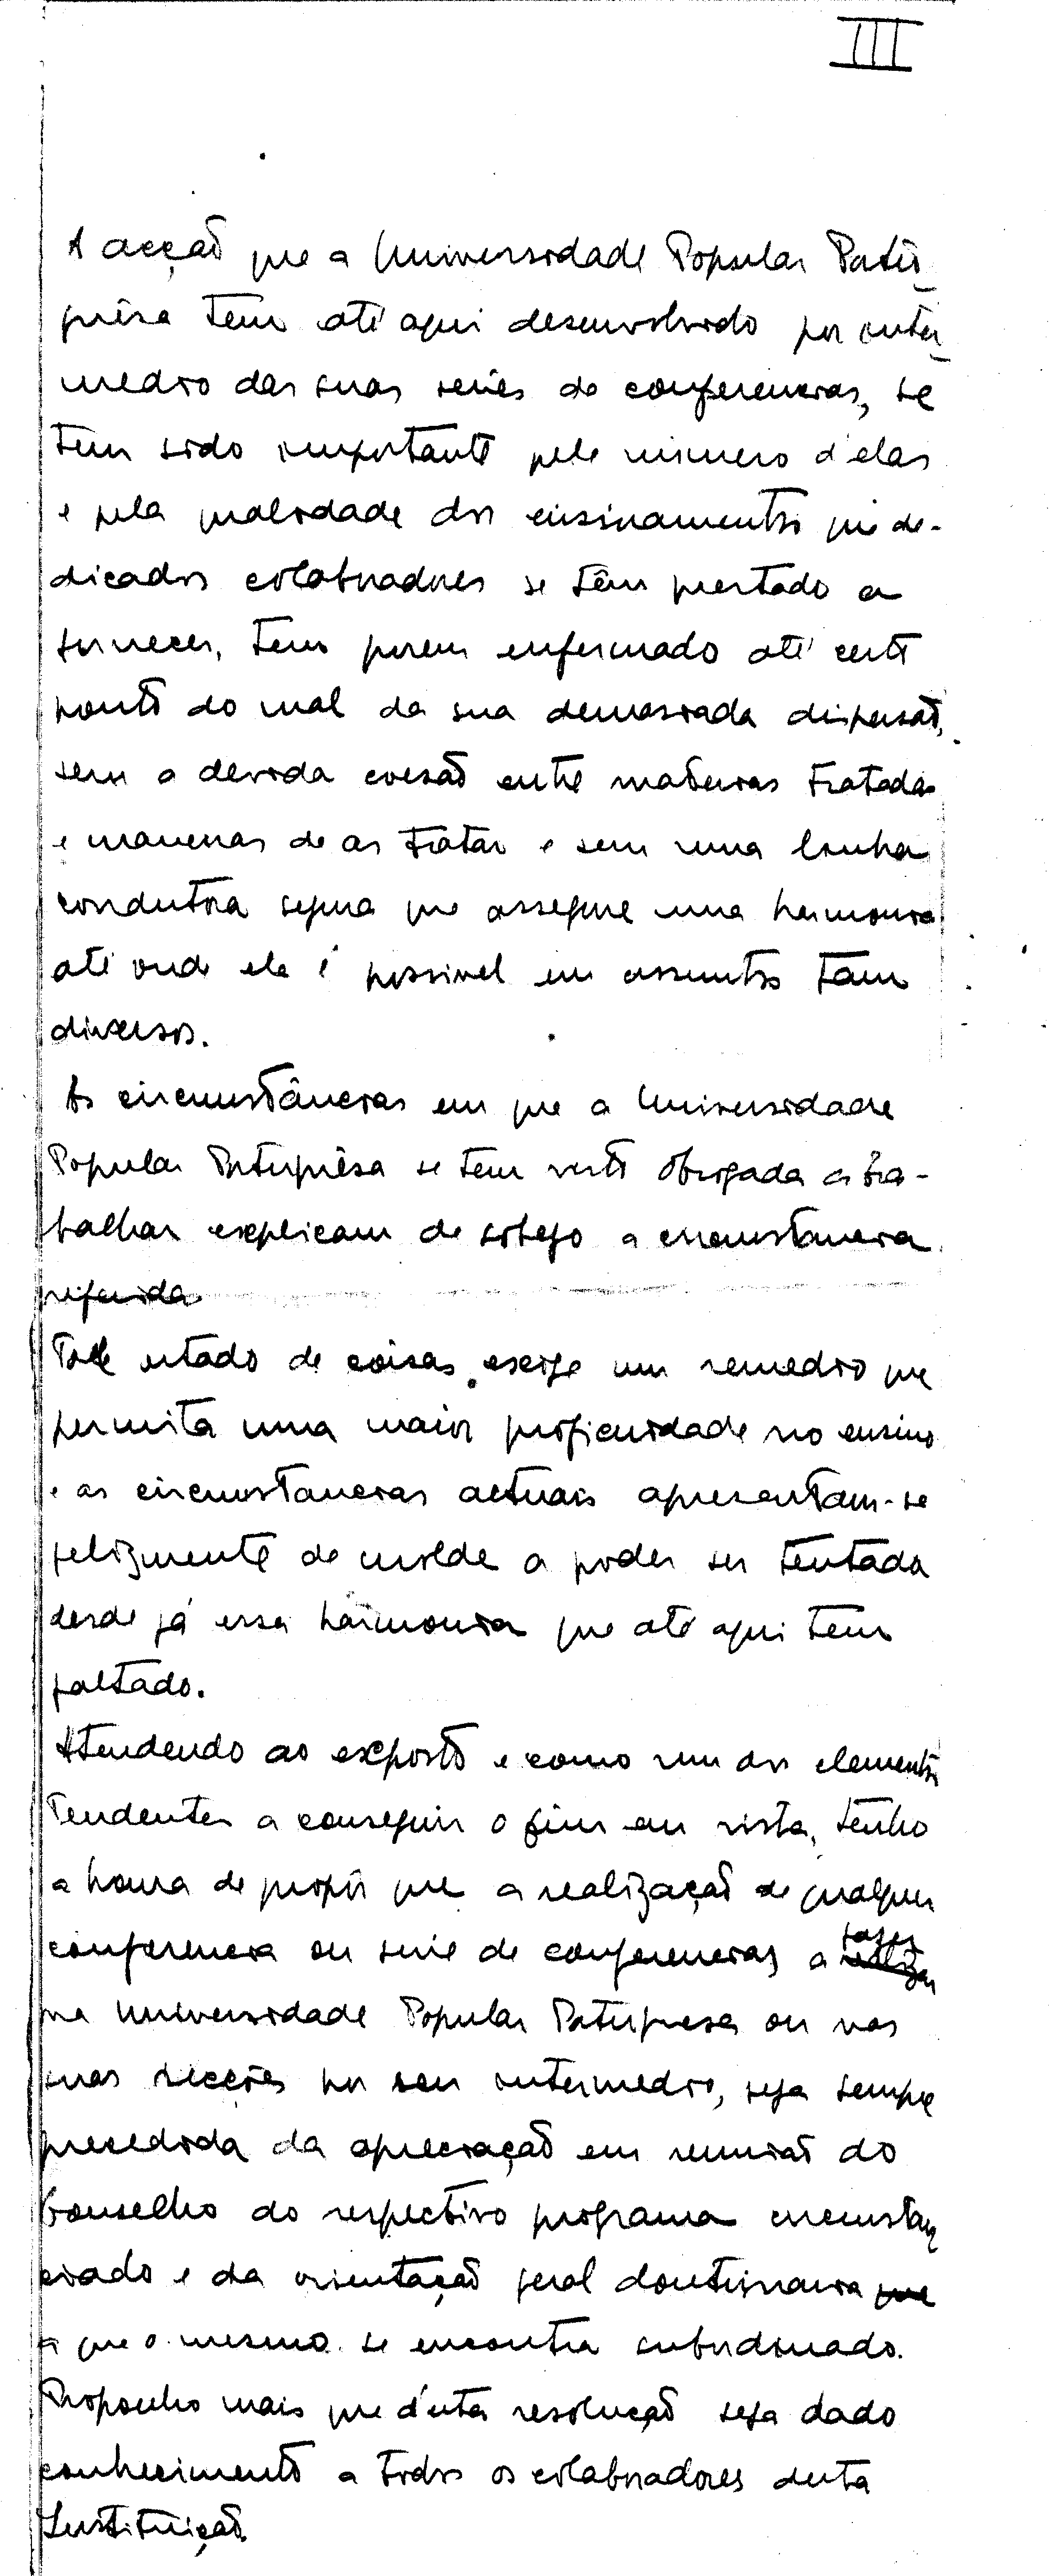 III
A acção que a Universidade Popular Portu-
guêsa tem até aqui desenvolvido por inter-
medio das suas series de conferencias, se
tem sido importante pelo numero d'elas
e pela qualidade dos ensinamentos que de-
dicados colaboradores se têm prestado a
fornecer, tem porem enfermado até certo
ponto do mal da sua demasiada dispersão,
sem a devida coesão entre materias tratadas
e maneiras de as tratar e sem uma linha
condutora segura que assegure uma harmonia
até onde ela é possivel em assuntos tam
diversos.
As circumstâncias em que a Universidade
Popular Portuguêsa se tem visto obrigada a tra-
balhar explicam de sobejo a circumstancia
referida
Tal estado de coisas exige um remedio que
permita uma maior proficuidade no ensino
e as circumstancias actuais apresentam-se
felizmente de molde a poder ser tentada
desde já essa harmonia que até aqui tem
faltado.
Atendendo ao exposto e como um dos elementos
tendentes a conseguir o fim em vista, tenho
a honra de propôr que a realização de qualquer
conferencia ou serie de conferencias a fazer realizar
na Universidade Popular Portuguesa ou nas
suas secções por seu intermedio, seja sempre
precedida da apreciação em reunião do
Conselho do respectivo programa circumstan
ciado e da orientação geral doutrinaria que
a que o mesmo se encontra subordinado.
Proponho mais que d'esta resolução seja dado
conhecimento a todos os colaboradores desta
Instituição.